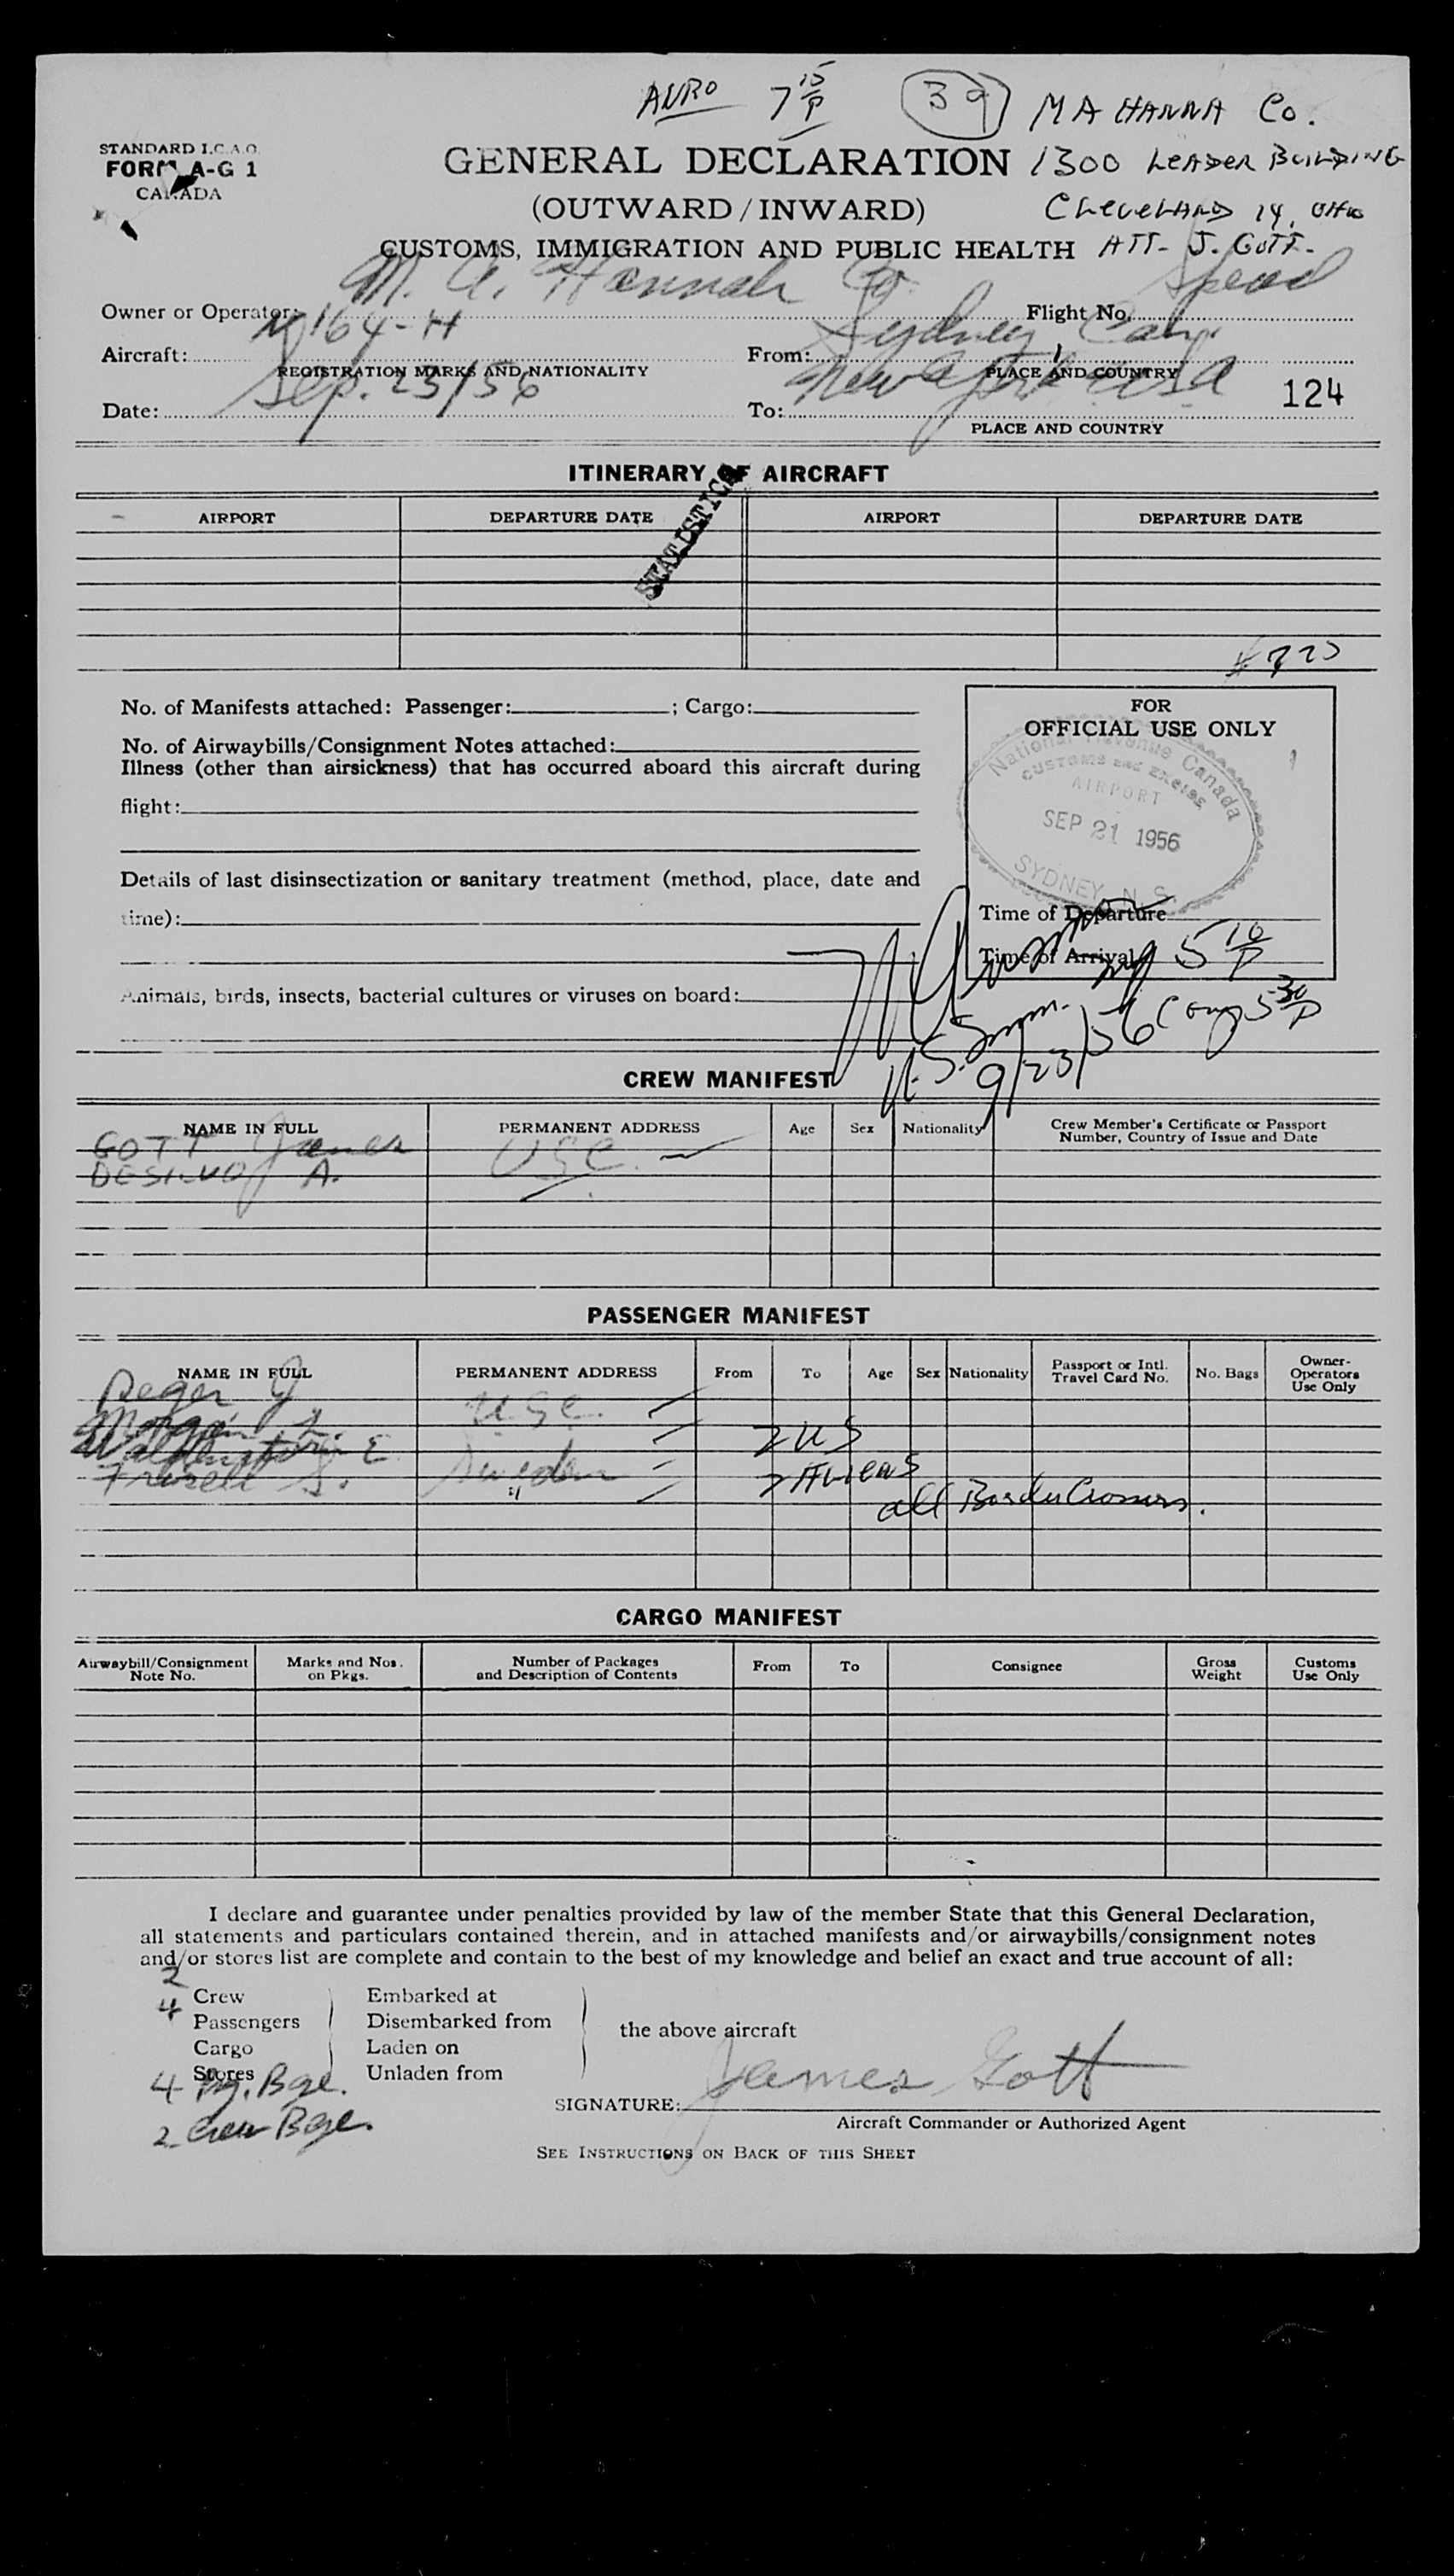 AVRO 7 15/P 39 M A HANNA Co.
STANDARD I.C.A.O.
FORM A-G 1
CANADA
GENERAL DECLARATION 1300 LEADER BUILDING
(OUTWARD/INWARD) CLEVELAND 14, OHIO
CUSTOMS, IMMIGRATION AND PUBLIC HEALTH ATT- J. GOTT-
Owner or Operator: M. A. Hannah Co. Flight No.
Aircraft: N164-H From: Sydney, Can.
REGISTRATION MARKS AND NATIONALITY PLACE AND COUNTRY
Date: Sep. 23/56 To: New York USA 124
PLACE AND COUNTRY
ITINERARY OF AIRCRAFT
STATISTICAL
AIRPORT DEPARTURE DATE AIRPORT DEPARTURE DATE
No. of Manifests attached: Passenger: ; Cargo:
No. of Airwaybills/Consignment Notes attached:
Illness (other than airsickness) that has occurred aboard this aircraft during
flight:
Details of last disinsectization or sanitary treatment (method, place, date and
time):
Animals, birds, insects, bacterial cultures or viruses on board:
FOR
OFFICIAL USE ONLY
National Revenue Canada
CUSTOMS and EXCISE
AIRPORT
SEP 21 1956
SYDNEY, N. S.
Time of Departure
Time of Arrival 5 10/P
U.S. Imm. 5 30/P
9/23/56
CREW MANIFEST
NAME IN FULL PERMANENT ADDRESS Age Sex Nationality Crew Member's Certificate or Passport
Number, Country of Issue and Date
GOTT James USC.
DESILVO A.
PASSENGER MANIFEST
NAME IN FULL PERMANENT ADDRESS From To Age Sex Nationality Passport or Intl.
Travel Card No. No. Bags Owner-
Operators
Use Only
Deger J USC.
Morgan L. 2 US
E. Sweden 2 ALIENS
S. " all Border Crossers.
CARGO MANIFEST
Airwaybill/Consignment
Note No. Marks and Nos.
on Pkgs. Number of Packages
and Description of Contents From To Consignee Gross
Weight Customs
Use Only
I declare and guarantee under penalties provided by law of the member State that this General Declaration,
all statements and particulars contained therein, and in attached manifests and/or airwaybills/consignment notes
and/or stores list are complete and contain to the best of my knowledge and belief an exact and true account of all:
2 Crew Embarked at
4 Passengers Disembarked from the above aircraft
Cargo Laden on
Stores Unladen from
4 Pg. Bge.
2 Crew Bge.
SIGNATURE: James Gott
Aircraft Commander or Authorized Agent
SEE INSTRUCTIONS ON BACK OF THIS SHEET